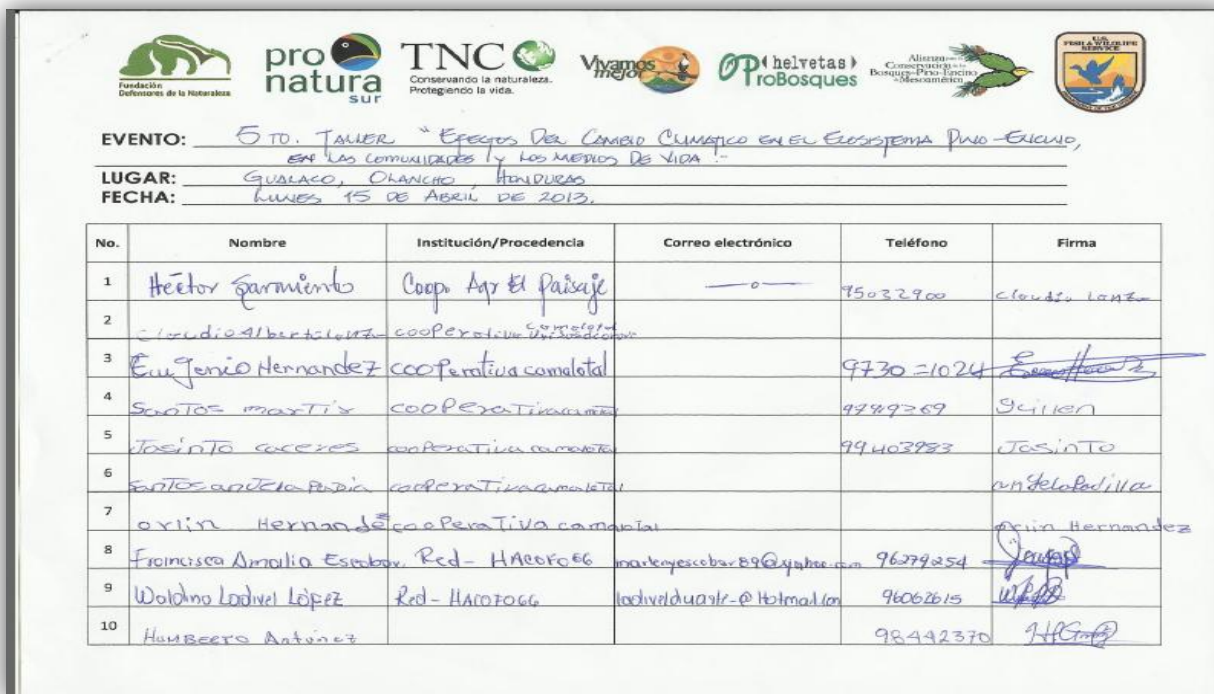 Fundación
Defensores de la Naturaleza
pro
natura
sur
TNC
Conservando la naturaleza.
Protegiendo la vida.
Vivamos
mejor
helvetas
ProBosques
Alianza para la
Conservación de los
Bosques de Pino-Encino
de Mesoamérica
U.S.
FISH & WILDLIFE
SERVICE
EVENTO: 5TO. TALLER "EFECTOS DEL CAMBIO CLIMATICO EN EL ECOSISTEMA PINO-ENCINO,
EN LAS COMUNIDADES Y LOS MEDIOS DE VIDA".-
LUGAR: GUALACO, OLANCHO HONDURAS
FECHA: LUNES 15 DE ABRIL DE 2013.
No. Nombre Institución/Procedencia Correo electrónico Teléfono Firma
1 Héctor Sarmiento Coop. Agr El Paisaje —o— 95032900 claudio Lanza
2 cooperativa
3 Eugenio Hernandez cooperativa camalotal 9730=1024
4 Santos martir cooperativa
5 Jasinto caceres cooperativa camalotal 99403983 Jasinto
6 cooperativa camalotal
7 orlin Hernande cooperativa camalotal orlin Hernandez
8 Francisca Amalia Escobar. Red-HACOFOGG marlenyescobar89@yahoo.com 96279254
9 Waldino Ladivel López Red-HACOFOGG 96062615
10 HUMBERTO Antúnez 98442370